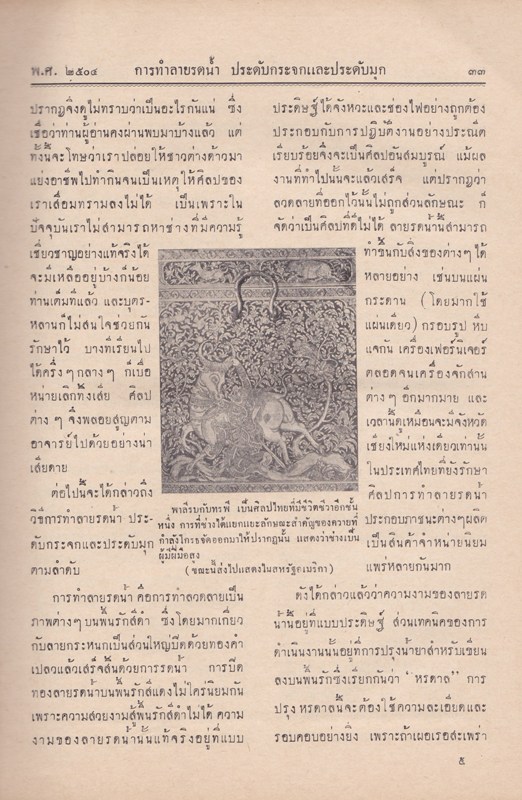 พ.ศ. ๒๕๐๔ การทำลายรดน้ำ ประดับกระจกและประดับมุก ๓๓
ปรากฏจึงดูไม่ทราบว่าเป็นอะไรกันแน่ ซึ่ง
เชื่อว่าท่านผู้อ่านคงผ่านพบมาบ้างแล้ว แต่
ทั้งนั้นจะโทษว่าเราปล่อยให้ชาวต่างด้าวมา
แย่งอาชีพไปทำกินจนเป็นเหตุให้ศิลปของ
เราเสื่อมทรามลงไม่ได้ เป็นเพราะใน
ปัจจุบันเราไม่สามารถหาช่างที่มีความรู้
เชี่ยวชาญอย่างแท้จริงได้
จะมีเหลืออยู่บ้างก็น้อย
ท่านเต็มที่แล้ว และบุตร-
หลานก็ไม่สนใจช่วยกัน
รักษาไว้ บางที่เรียนไป
ได้ครึ่ง ๆ กลาง ๆ ก็เบื่อ
หน่ายเลิกทิ้งเสีย ศิลป
ต่าง ๆ จึงพลอยสูญตาม
อาจารย์ไปด้วยอย่างน่า
เสียดาย
ต่อไปนี้จะได้กล่าวถึง
วิธีการทำลายรดน้ำ ประ-
ดับกระจกและประดับมุก
ตามลำดับ
การทำลายรดน้ำ คือการทำลวดลายเป็น
ภาพต่างๆ บนพื้นรักสีดำ ซึ่งโดยมากเกี่ยว
กับลายกระหนกเป็นส่วนใหญ่ปิดด้วยทองคำ
เปลวแล้วเสร็จสิ้นด้วยการรดน้ำ การปิด
ทองลายรดน้ำบนพื้นรักสีแดงไม่ใคร่นิยมกัน
เพราะความสวยงามสู้พื้นรักสีดำไม่ได้ ความ
งามของลายรดน้ำนั้นแท้จริงอยู่ที่แบบ
ประดิษฐ์ได้จังหวะและช่องไฟอย่างถูกต้อง
ประกอบกับการปฏิบัติงานอย่างประณีต
เรียบร้อยจึงจะเป็นศิลปอันสมบูรณ์ แม้ผล
งานที่ทำไปนั้นจะแล้วเสร็จ แต่ปรากฏว่า
ลวดลายที่ออกไว้นั้นไม่ถูกส่วนลักษณะ ก็
จัดว่าเป็นศิลปที่ดีไม่ได้ ลายรดน้ำสามารถ
ทำขึ้นกับสิ่งของต่างๆ ได้
หลายอย่าง เช่นบนแผ่น
กระดาน (โดยมากใช้
แผ่นเดียว) กรอบรูป หีบ
แจกัน เครื่องเฟอร์นิเจอร์
ตลอดจนเครื่องจักสาน
ต่าง ๆ อีกมากมาย และ
เวลานี้ดูเหมือนจะมีจังหวัด
เชียงใหม่แห่งเดียวเท่านั้น
ในประเทศไทยที่ยังรักษา
ศิลปการทำลายรดน้ำ
ประกอบภาชนะต่างๆผลิต
เป็นสินค้าจำหน่ายนิยม
แพร่หลายกันมาก
ดังได้กล่าวแล้วว่าความงามของลายรด
น้ำนี้อยู่ที่แบบประดิษฐ์ ส่วนเทคนิคของการ
ดำเนินงานนั้นอยู่ที่การปรุงน้ำยาสำหรับเขียน
ลงบนพื้นรักซึ่งเรียกกันว่า "หรดาล" การ
ปรุงหรดาลนี้จะต้องใช้ความละเอียดและ
รอบคอบอย่างยิ่ง เพราะถ้าเผอเรอสะเพร่า
พาลีรบกับทรพี เป็นศิลปไทยที่มีชีวิตชีวาอีกชิ้น
หนึ่ง การที่ช่างได้แยกแยะลักษณะสำคัญของควายที่
กำลังโกรธจัดออกมาให้ปรากฏนั้น แสดงว่าช่างเป็น
ผู้มีฝีมือสูง
(ขณะนี้ส่งไปแสดงในสหรัฐอเมริกา)
๕